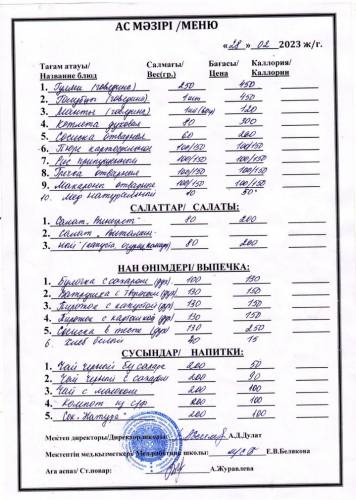 АС МӘЗІРІ /МЕНЮ
« 28 » 02 2023 ж/г.
Тағам атауы/ Салмағы/ Бағасы/ Каллория/
Название блюд Вес(гр.) Цена Каллории
1. Гуляш (говядина) 250 450
2. (говядина) 1 шт 450
3. Манты (говядина) 120
4. Котлета духовая 80 300
5. Сосиска отварная 60 200
6. Пюре картофельное 100/150 100/150
7. Рис припущенный 100/150 100/150
8. Гречка отварная 100/150 100/150
9. Макароны отварные 100/150 100/150
10. мёд натуральный 10 50
САЛАТТАР/ САЛАТЫ:
1. Салат „Винегрет" 80 200
2. Салат
3. (капуста, огурец, помидор) 80 200
НАН ӨНІМДЕРІ/ ВЫПЕЧКА:
1. Булочка с сахаром (дух) 100 130
2. Ватрушка с творогом (дух) 130 150
3. Пирожок с капустой (дух) 130 150
4. Пирожок с картошкой (дух) 130 150
5. Сосиска в тесте (дух) 130 250
6. хлеб белый 40 15
СУСЫНДАР/ НАПИТКИ:
1. Чай черный без сахара 200 50
2. Чай черный с сахаром 200 90
3. Чай с молоком 200 100
4. Компот из с/ф 200 100
5. Сок „Натура" 200 100
Мектеп директоры/Директор школы: А.Д.Дулат
Мектептің мед.кызметкері/ Мед.работник школы: Е.В.Белякова
Аға аспаз/ Ст.повар: А.Журавлева